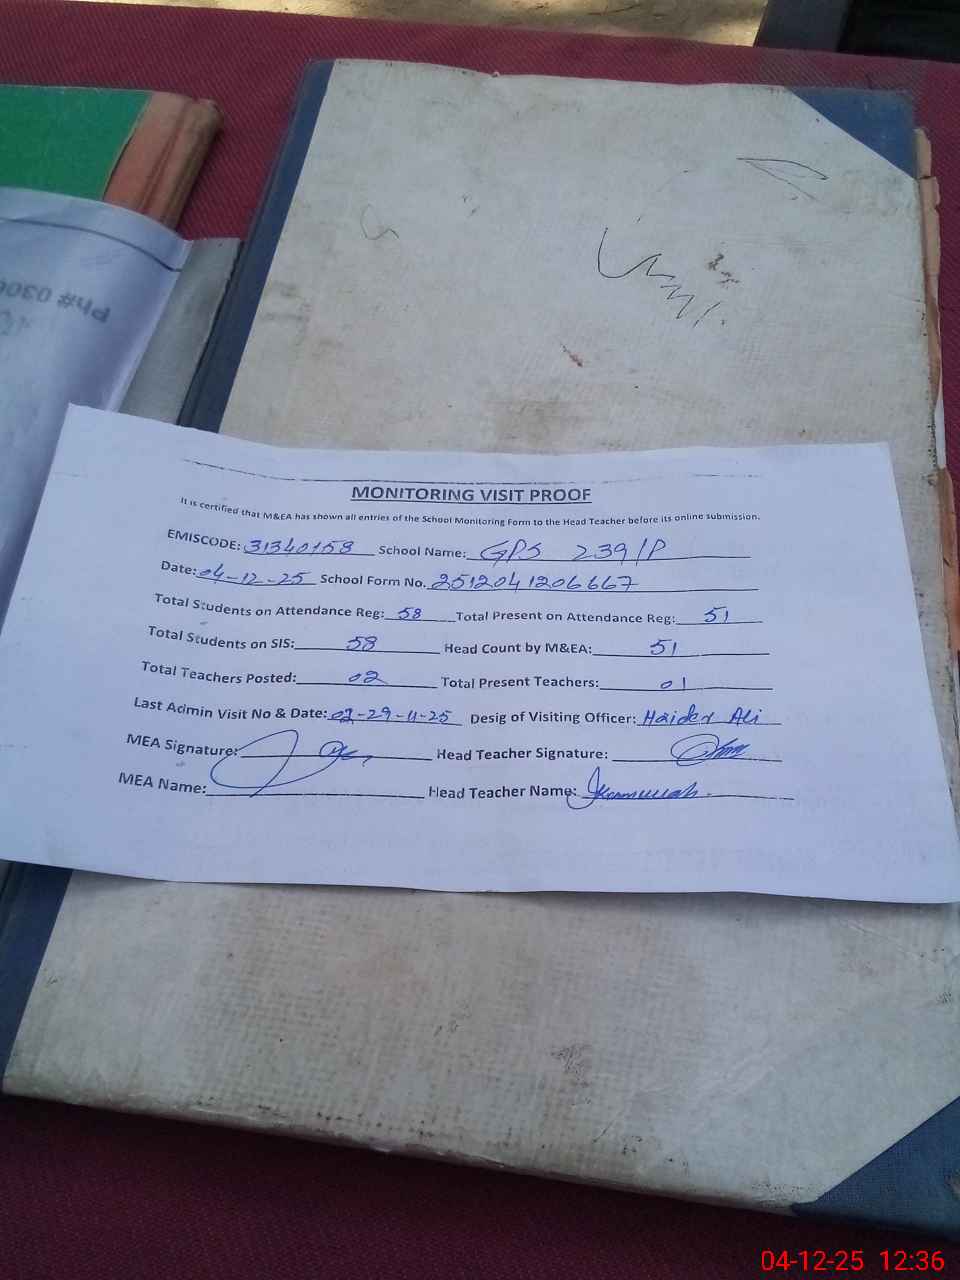 Ph# 030
MONITORING VISIT PROOF
It is certified that M&EA has shown all entries of the School Monitoring Form to the Head Teacher before its online submission.
EMISCODE: 31340158 School Name: GPS 239/P
Date: 04-12-25 School Form No. 2512041206667
Total Students on Attendance Reg: 58 Total Present on Attendance Reg: 51
Total Students on SIS: 58 Head Count by M&EA: 51
Total Teachers Posted: 02 Total Present Teachers: 01
Last Admin Visit No & Date: 02-29-11-25 Desig of Visiting Officer: Haider Ali
MEA Signature: Head Teacher Signature:
MEA Name: Head Teacher Name:
04-12-25 12:36